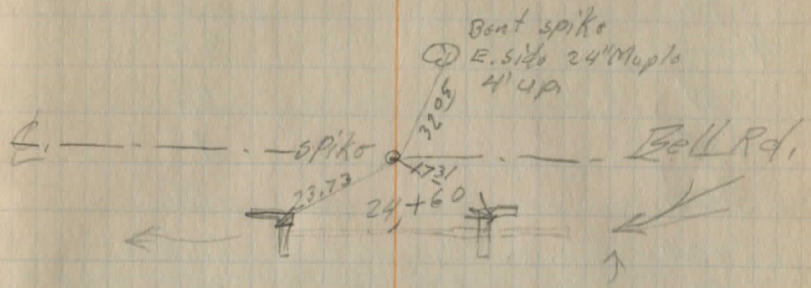 Bent spike
E. side 24" Maple
4' up
32.05
℄ spike Bell Rd.
17.31
23.73
24+60